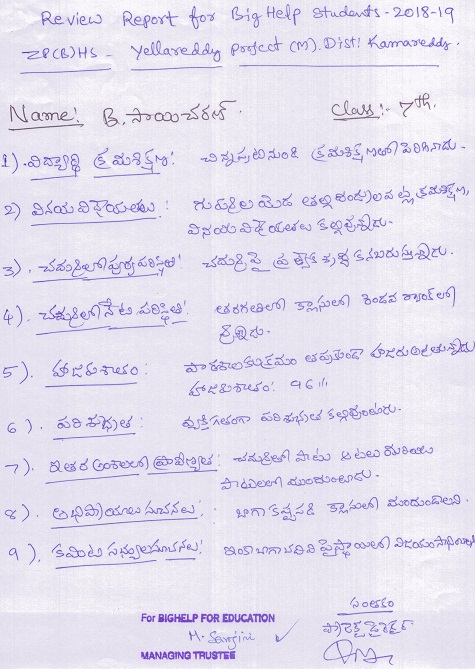 Review Report for Big Help Students - 2018-19
ZP(B)HS - Yellareddy Project (M). Dist: Kamareddy.
Name: B. సాయిచరణ్. Class:- 7th.
1). విద్యార్థి క్రమశిక్షణ: చిన్నప్పటినుండి క్రమశిక్షణతో పెరిగినాడు.
2) వినయ విధేయతలు: గురువుల యెడ తల్లిదండ్రుల పట్ల క్రమశిక్షణ,
వినయ విధేయతలు కల్గివున్నాడు.
3). చదువులో పూర్వ పరిస్థితి: చదువుపై ప్రత్యేక శ్రద్ధ కనబరుస్తున్నాడు.
4). చదువులో నేటి పరిస్థితి: తరగతిలో క్లాసులో రెండవ ర్యాంక్‌లో
వున్నాడు.
5). హాజరుశాతం: పాఠశాలకు క్రమం తప్పకుండా హాజరు అవుతున్నాడు
హాజరుశాతం: 96%
6). పరిశుభ్రత: వ్యక్తిగతంగా పరిశుభ్రత కల్గివుంటాడు.
7). ఇతర అంశాలలో ప్రావీణ్యత: చదువుతో పాటు ఆటలు మరియు
పాటలలో ముందుంటాడు.
8). అభిప్రాయాలు సూచనలు: బాగా కష్టపడి క్లాసులో ముందుండాలని.
9). కమిటి సభ్యుల సూచనలు: ఇంకా బాగా చదివి పైస్థాయిలో విజయం
సంతకం
ప్రాజెక్ట్ డైరెక్టర్
For BIGHELP FOR EDUCATION
M. Sanjini
MANAGING TRUSTEE